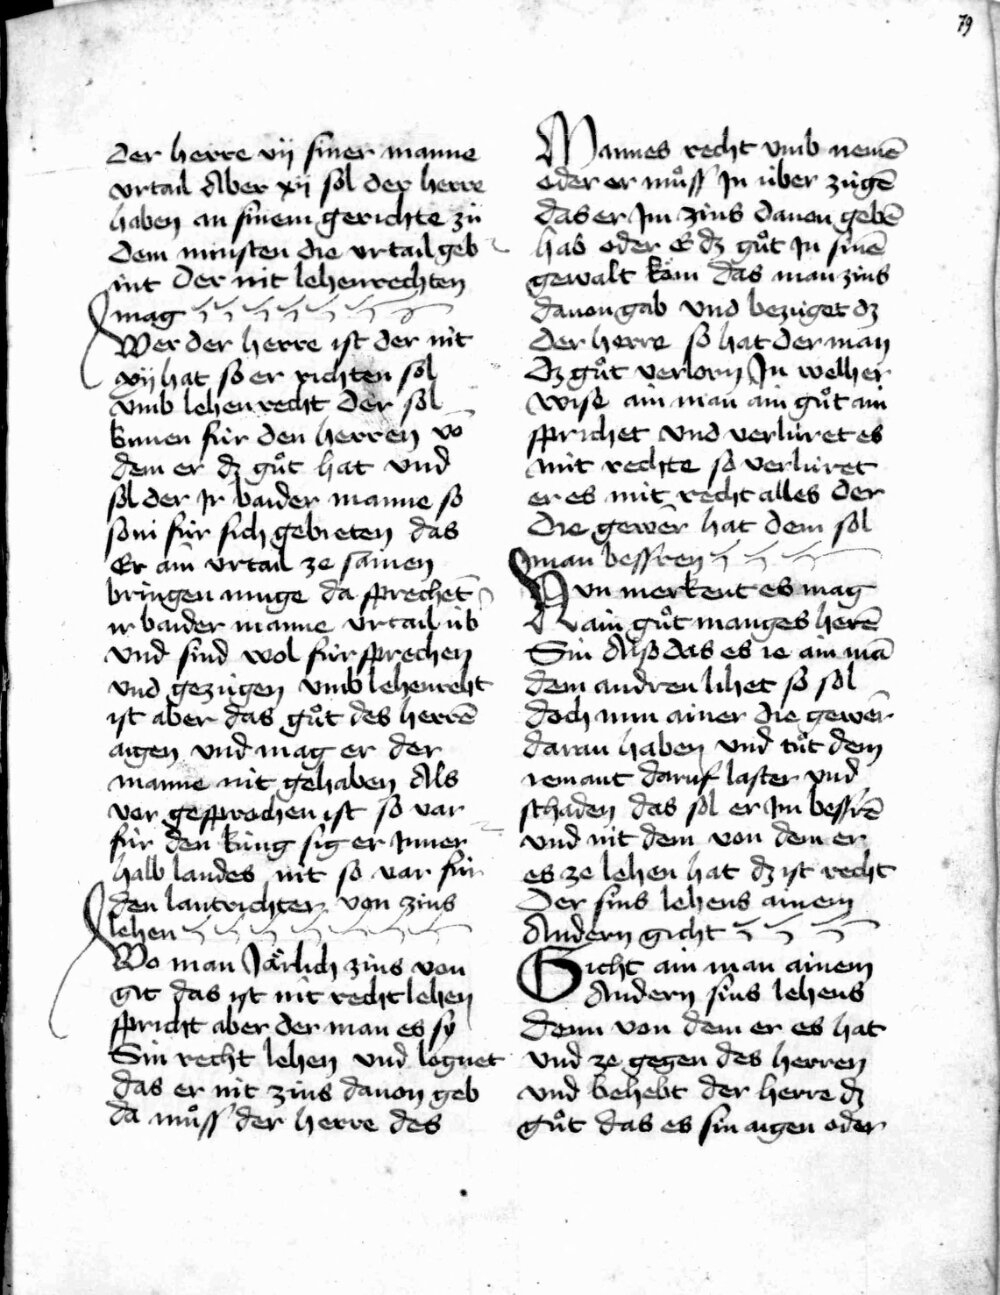 79
der herre vij siner manne
vrtail Aber xij sol der herre
haben an sinem gerichte zů
dem minsten die vrtail geb
int der nit lehenrechten
mag
Wer der herre ist der nit
xij hat so er richten sol
vmb lehenrecht der sol
komen für den herren vō
dem er dz gůt hat vnd
sol der Jr baider manne so
som für sich gebieten das
Er ain vrtail ze samen
bringen muge da sprechēt
ir baider manne vrtail üb
vnd sind wol fürsprechen
vnd gezügen vmb lehenreht
ist aber das gůt des herrē
aigen vnd mag er der
manne nit gehaben Als
vor gesprochen ist so var
für den küng sig er Jnner
halb landes nit so var für
den lantrichter von zins
lehen
Wo man Järlich zins von
git das ist nit recht lehen
spricht aber der man es sy
Sin recht lehen vnd lognet
das er nit zins dauon geb
da můss der herre des
Mannes recht vmb nemē
oder er můss Jn über zügē
das er Jm zins dauon gebē
hab oder E dz gůt Jn sinē
gewalt köm das man zins
dauon gab vnd bezüget dz
der herre so hat der man
dz gůt verlorn Jn welher
wise ain man ain gůt ain
sprichet vnd verlüret es
mit rechte so verlüret
er es mit recht alles der
die gewēr hat dem sol
man bessren
Nvn merkent es mag
ain gůt manges herē
Sin Also das es ie ain mā
dem andren lihet so sol
doch nun ainer die gewer
daran haben vnd tůt dem
iemant daruf laster vnd
schaden das sol er Jm bessrē
vnd nit dem von dem er
es ze lehen hat dz ist recht
Der sins lehens ainem
Andern gicht
Gicht ain man ainem
Andern sins lehens
denn von dem er es hat
vnd ze gegen des herren
vnd behebt der herre dz
gůt das es sin aigen oder